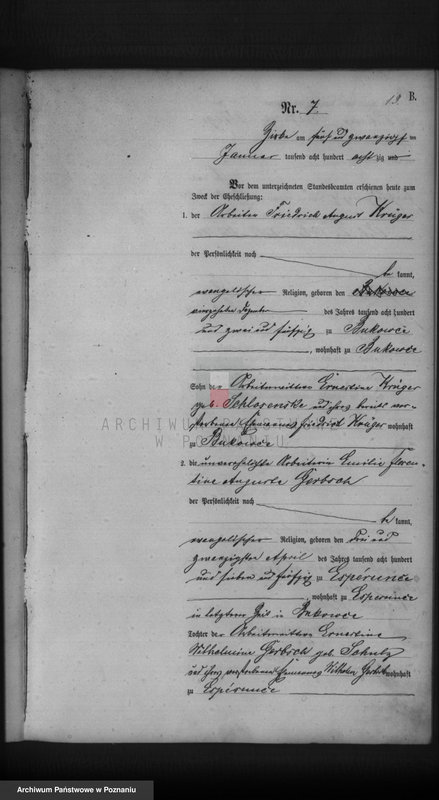 B.
13.
Nr. 7.
Zirke am fünf und zwanzigsten
Januar tausend acht hundert achtzig und
Vor dem unterzeichneten Standesbeamten erschienen heute zum
Zweck der Eheschließung:
1. der Arbeiter Friedrich August Krüger
der Persönlichkeit nach
be kannt,
evangelischer Religion, geboren den
Dezember des Jahres tausend acht hundert
und zwei und fünfzig zu Bukowce
, wohnhaft zu Bukowce
Sohn der Arbeiterwittwe Ernestine Krüger
geb. und ihres bereits ver-
storbenen Ehemannes Friedrich Krüger wohnhaft
zu Bukowce
2. die unverehelichte Arbeiterin Emilie Floren-
tine Auguste Gerbsch
der Persönlichkeit nach
be kannt,
evangelischer Religion, geboren den drei und
zwanzigsten April des Jahres tausend acht hundert
und sieben und fünfzig zu Espérance
, wohnhaft zu Esperance
in letzter Zeit in Bukowce
Tochter der Arbeiterwittwe Ernestine
Wilhelmine Gerbsch geb. Schulz
und ihres verstorbenen Ehemannes Wilhelm Gerbsch wohnhaft
zu Espérance
ARCHIWUM
W POZNANIU
Archiwum Państwowe w Poznaniu